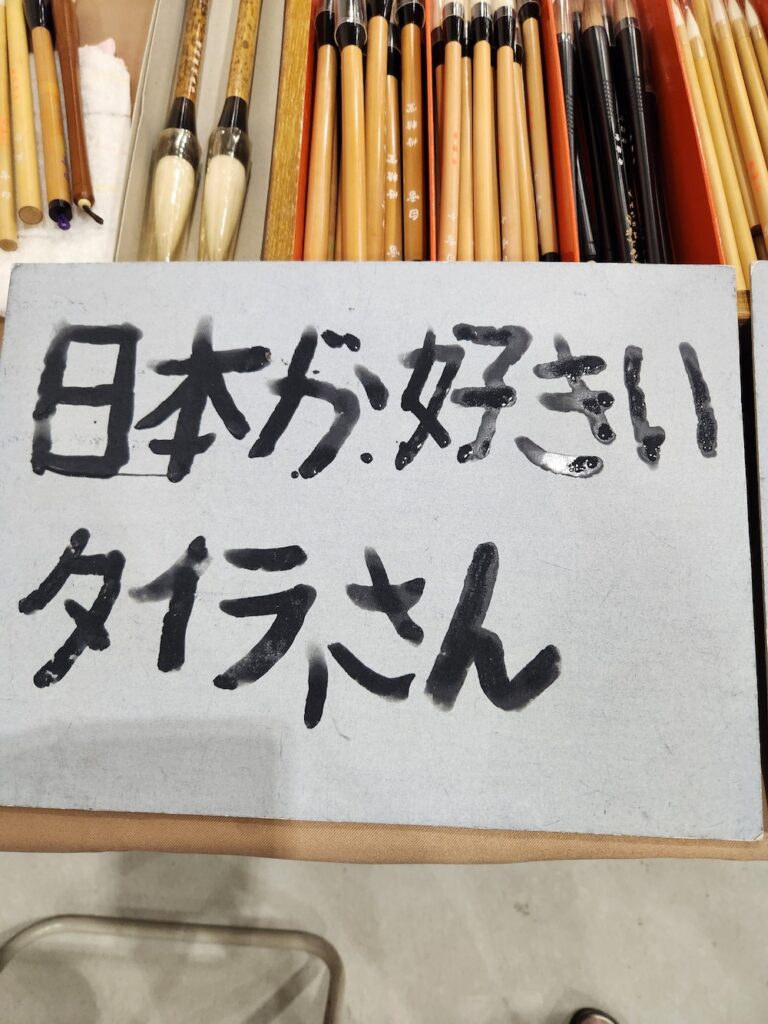 日本が好きい
タイラさん